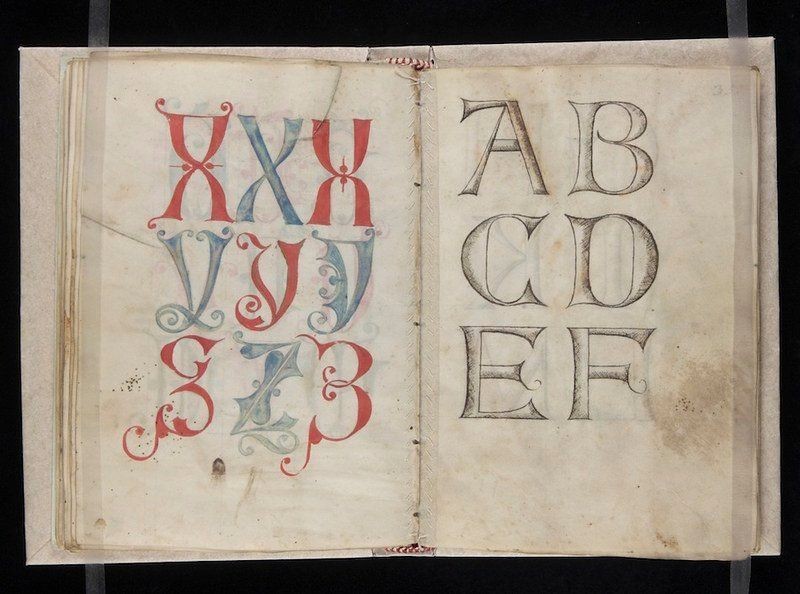 X X X
Y Y Y
Z Z Z
A B
C D
E F